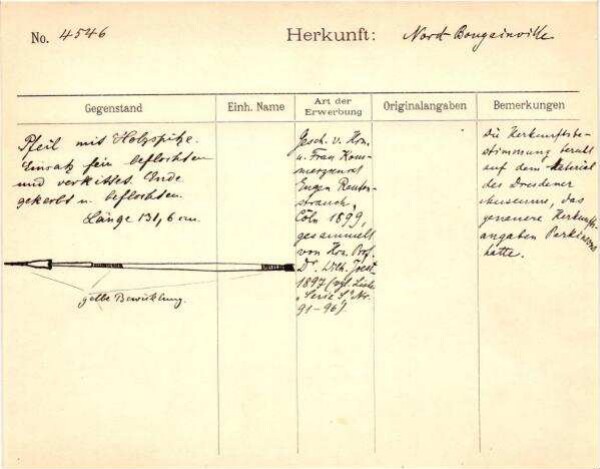 No. 4546 Herkunft: Nord Bougainville
Gegenstand Einh. Name Art der Erwerbung Originalangaben Bemerkungen
Pfeil mit Holzspitze.
Einsatz fein beflochten
und verkittet. Ende
gekerbt u. beflochten.
Länge 131,6 cm.
gelbe Bewicklung.
Gesch. v. Hrn.
u. Frau Kom-
merzienrat
Eugen Rauten-
strauch,
Cöln 1899,
gesammelt
von Hrn. Prof.
Dr. Wilh. Joest
1897 (vgl. Liste
"Serie S" Nr.
91-96).
Die Herkunftsbe-
stimmung beruht
auf dem Material
des Dresdener
Museums, das
genauere Herkunfts-
angaben Parkinsons
hatte.